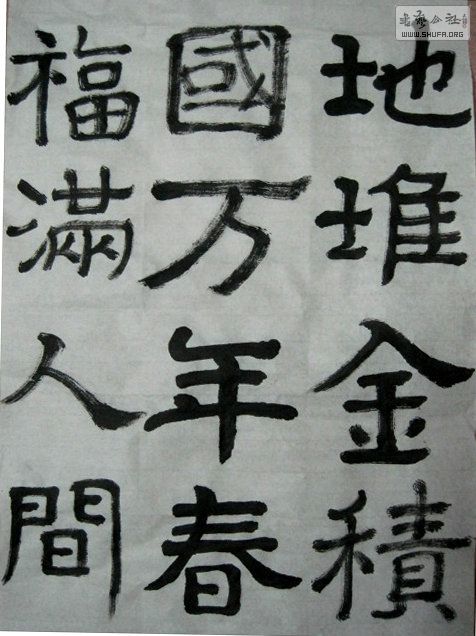 地堆金積
國万年春
福滿人間
书法公社
WWW.SHUFA.ORG